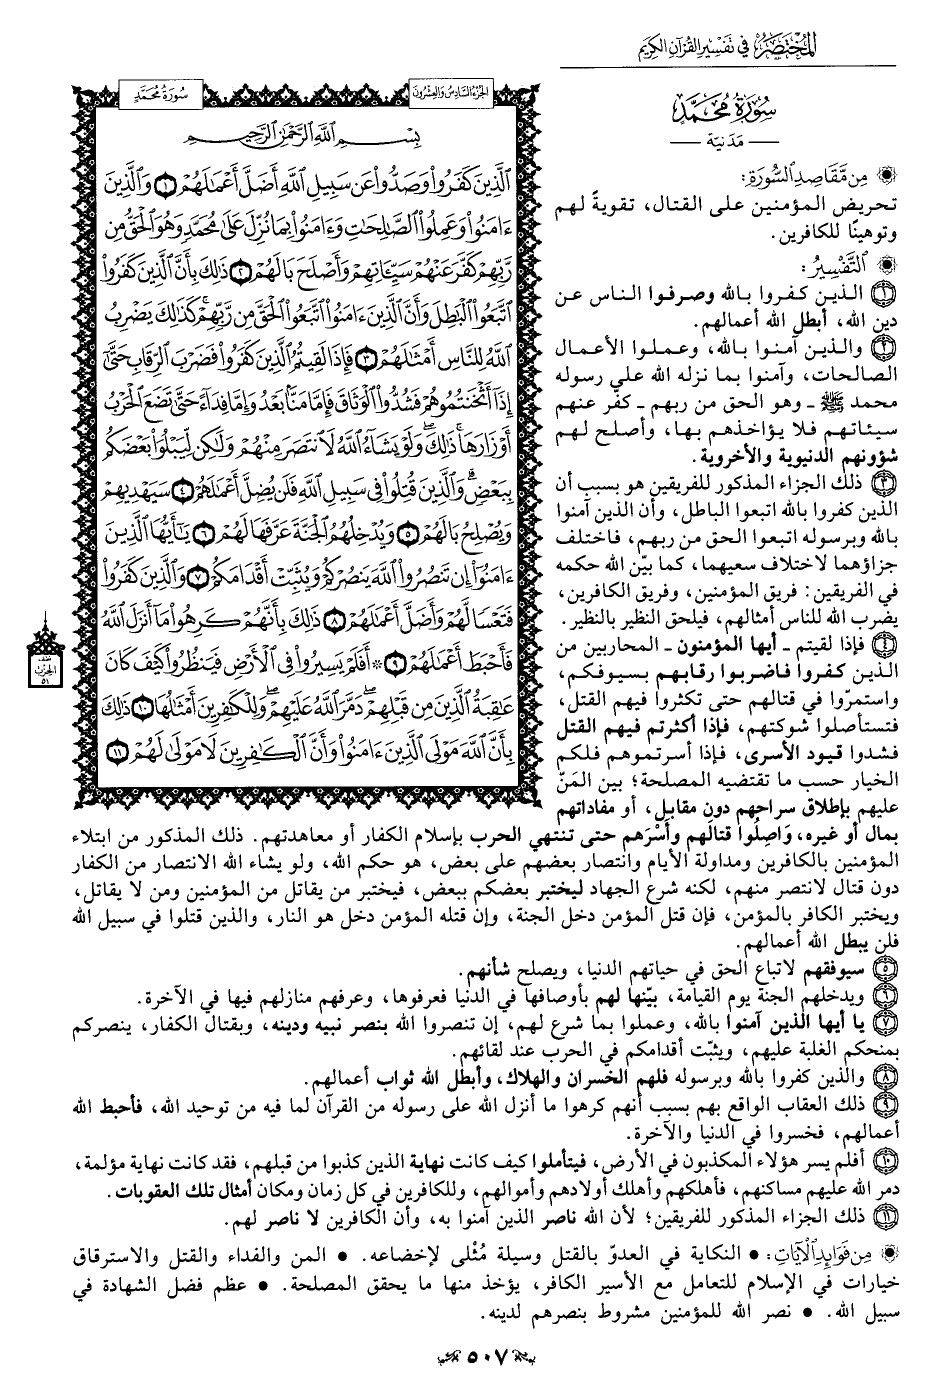 المختصر في تفسير القرآن الكريم
سُورَةُ مُحَمَّدٍ
الجزء السادس والعشرون
سُورَةُ مُحَمَّدٍ
— مَدَنيّة —
بِسْمِ ٱللَّهِ ٱلرَّحْمَٰنِ ٱلرَّحِيمِ
ٱلَّذِينَ كَفَرُواْ وَصَدُّواْ عَن سَبِيلِ ٱللَّهِ أَضَلَّ أَعْمَٰلَهُمْ ١ وَٱلَّذِينَ
ءَامَنُواْ وَعَمِلُواْ ٱلصَّٰلِحَٰتِ وَءَامَنُواْ بِمَا نُزِّلَ عَلَىٰ مُحَمَّدٍ وَهُوَ ٱلْحَقُّ مِن
رَّبِّهِمْ كَفَّرَ عَنْهُمْ سَيِّـَٔاتِهِمْ وَأَصْلَحَ بَالَهُمْ ٢ ذَٰلِكَ بِأَنَّ ٱلَّذِينَ كَفَرُواْ
ٱتَّبَعُواْ ٱلْبَٰطِلَ وَأَنَّ ٱلَّذِينَ ءَامَنُواْ ٱتَّبَعُواْ ٱلْحَقَّ مِن رَّبِّهِمْ ۚ كَذَٰلِكَ يَضْرِبُ
ٱللَّهُ لِلنَّاسِ أَمْثَٰلَهُمْ ٣ فَإِذَا لَقِيتُمُ ٱلَّذِينَ كَفَرُواْ فَضَرْبَ ٱلرِّقَابِ حَتَّىٰٓ
إِذَآ أَثْخَنتُمُوهُمْ فَشُدُّواْ ٱلْوَثَاقَ فَإِمَّا مَنًّۢا بَعْدُ وَإِمَّا فِدَآءً حَتَّىٰ تَضَعَ ٱلْحَرْبُ
أَوْزَارَهَا ۚ ذَٰلِكَ ۖ وَلَوْ يَشَآءُ ٱللَّهُ لَٱنتَصَرَ مِنْهُمْ وَلَٰكِن لِّيَبْلُوَاْ بَعْضَكُم
بِبَعْضٍ ۗ وَٱلَّذِينَ قُتِلُواْ فِي سَبِيلِ ٱللَّهِ فَلَن يُضِلَّ أَعْمَٰلَهُمْ ٤ سَيَهْدِيهِمْ
وَيُصْلِحُ بَالَهُمْ ٥ وَيُدْخِلُهُمُ ٱلْجَنَّةَ عَرَّفَهَا لَهُمْ ٦ يَٰٓأَيُّهَا ٱلَّذِينَ
ءَامَنُوٓاْ إِن تَنصُرُواْ ٱللَّهَ يَنصُرْكُمْ وَيُثَبِّتْ أَقْدَامَكُمْ ٧ وَٱلَّذِينَ كَفَرُواْ
فَتَعْسًا لَّهُمْ وَأَضَلَّ أَعْمَٰلَهُمْ ٨ ذَٰلِكَ بِأَنَّهُمْ كَرِهُواْ مَآ أَنزَلَ ٱللَّهُ
فَأَحْبَطَ أَعْمَٰلَهُمْ ٩ ۞ أَفَلَمْ يَسِيرُواْ فِي ٱلْأَرْضِ فَيَنظُرُواْ كَيْفَ كَانَ
عَٰقِبَةُ ٱلَّذِينَ مِن قَبْلِهِمْ ۚ دَمَّرَ ٱللَّهُ عَلَيْهِمْ ۖ وَلِلْكَٰفِرِينَ أَمْثَٰلُهَا ١٠ ذَٰلِكَ
بِأَنَّ ٱللَّهَ مَوْلَى ٱلَّذِينَ ءَامَنُواْ وَأَنَّ ٱلْكَٰفِرِينَ لَا مَوْلَىٰ لَهُمْ ١١
نصف
الحزب
٥١
مِن مَّقَاصِدِ ٱلسُّورَةِ:
تحريض المؤمنين على القتال، تقويةً لهم
وتوهينًا للكافرين.
التَّفْسِيرُ:
١ الذين كفروا بالله وصرفوا الناس عن
دين الله، أبطل الله أعمالهم.
٢ والذين آمنوا بالله، وعملوا الأعمال
الصالحات، وآمنوا بما نزله الله على رسوله
محمد ﷺ ـ وهو الحق من ربهم ـ كفّر عنهم
سيئاتهم فلا يؤاخذهم بها، وأصلح لهم
شؤونهم الدنيوية والأخروية.
٣ ذلك الجزاء المذكور للفريقين هو بسبب أن
الذين كفروا بالله اتبعوا الباطل، وأن الذين آمنوا
بالله وبرسوله اتبعوا الحق من ربهم، فاختلف
جزاؤهما لاختلاف سعيهما، كما بيّن الله حكمه
في الفريقين: فريق المؤمنين، وفريق الكافرين،
يضرب الله للناس أمثالهم، فيلحق النظير بالنظير.
٤ فإذا لقيتم ـ أيها المؤمنون ـ المحاربين من
الذين كفروا فاضربوا رقابهم بسيوفكم،
واستمرّوا في قتالهم حتى تكثروا فيهم القتل،
فتستأصلوا شوكتهم، فإذا أكثرتم فيهم القتل
فشدوا قيود الأسرى، فإذا أسرتموهم فلكم
الخيار حسب ما تقتضيه المصلحة؛ بين المَنّ
عليهم بإطلاق سراحهم دون مقابل، أو مفاداتهم
بمال أو غيره، وَاصِلُوا قتالَهم وأَسْرَهم حتى تنتهي الحرب بإسلام الكفار أو معاهدتهم. ذلك المذكور من ابتلاء
المؤمنين بالكافرين ومداولة الأيام وانتصار بعضهم على بعض، هو حكم الله، ولو يشاء الله الانتصار من الكفار
دون قتال لانتصر منهم، لكنه شرع الجهاد ليختبر بعضكم ببعض، فيختبر من يقاتل من المؤمنين ومن لا يقاتل،
ويختبر الكافر بالمؤمن، فإن قتل المؤمن دخل الجنة، وإن قتله المؤمن دخل هو النار، والذين قتلوا في سبيل الله
فلن يبطل الله أعمالهم.
٥ سيوفقهم لاتباع الحق في حياتهم الدنيا، ويصلح شأنهم.
٦ ويدخلهم الجنة يوم القيامة، بيّنها لهم بأوصافها في الدنيا فعرفوها، وعرفهم منازلهم فيها في الآخرة.
٧ يا أيها الذين آمنوا بالله، وعملوا بما شرع لهم، إن تنصروا الله بنصر نبيه ودينه، وبقتال الكفار، ينصركم
بمنحكم الغلبة عليهم، ويثبّت أقدامكم في الحرب عند لقائهم.
٨ والذين كفروا بالله وبرسوله فلهم الخسران والهلاك، وأبطل الله ثواب أعمالهم.
٩ ذلك العقاب الواقع بهم بسبب أنهم كرهوا ما أنزل الله على رسوله من القرآن لما فيه من توحيد الله، فأحبط الله
أعمالهم، فخسروا في الدنيا والآخرة.
١٠ أفلم يسر هؤلاء المكذبون في الأرض، فيتأملوا كيف كانت نهاية الذين كذبوا من قبلهم، فقد كانت نهاية مؤلمة،
دمر الله عليهم مساكنهم، فأهلكهم وأهلك أولادهم وأموالهم، وللكافرين في كل زمان ومكان أمثال تلك العقوبات.
١١ ذلك الجزاء المذكور للفريقين؛ لأن الله ناصر الذين آمنوا به، وأن الكافرين لا ناصر لهم.
مِن فَوَائِدِ ٱلْآيَاتِ: • النكاية في العدوّ بالقتل وسيلة مُثْلى لإخضاعه. • المن والفداء والقتل والاسترقاق
خيارات في الإسلام للتعامل مع الأسير الكافر، يؤخذ منها ما يحقق المصلحة. • عظم فضل الشهادة في
سبيل الله. • نصر الله للمؤمنين مشروط بنصرهم لدينه.
٥٠٧